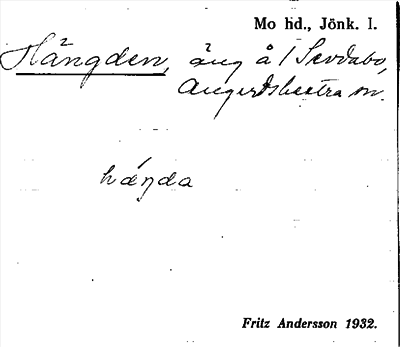 Mo hd., Jönk. l.
Hängden, äng å 1 Sevdabo,
Angerdshestra sn.
háŋda
Fritz Andersson 1932.